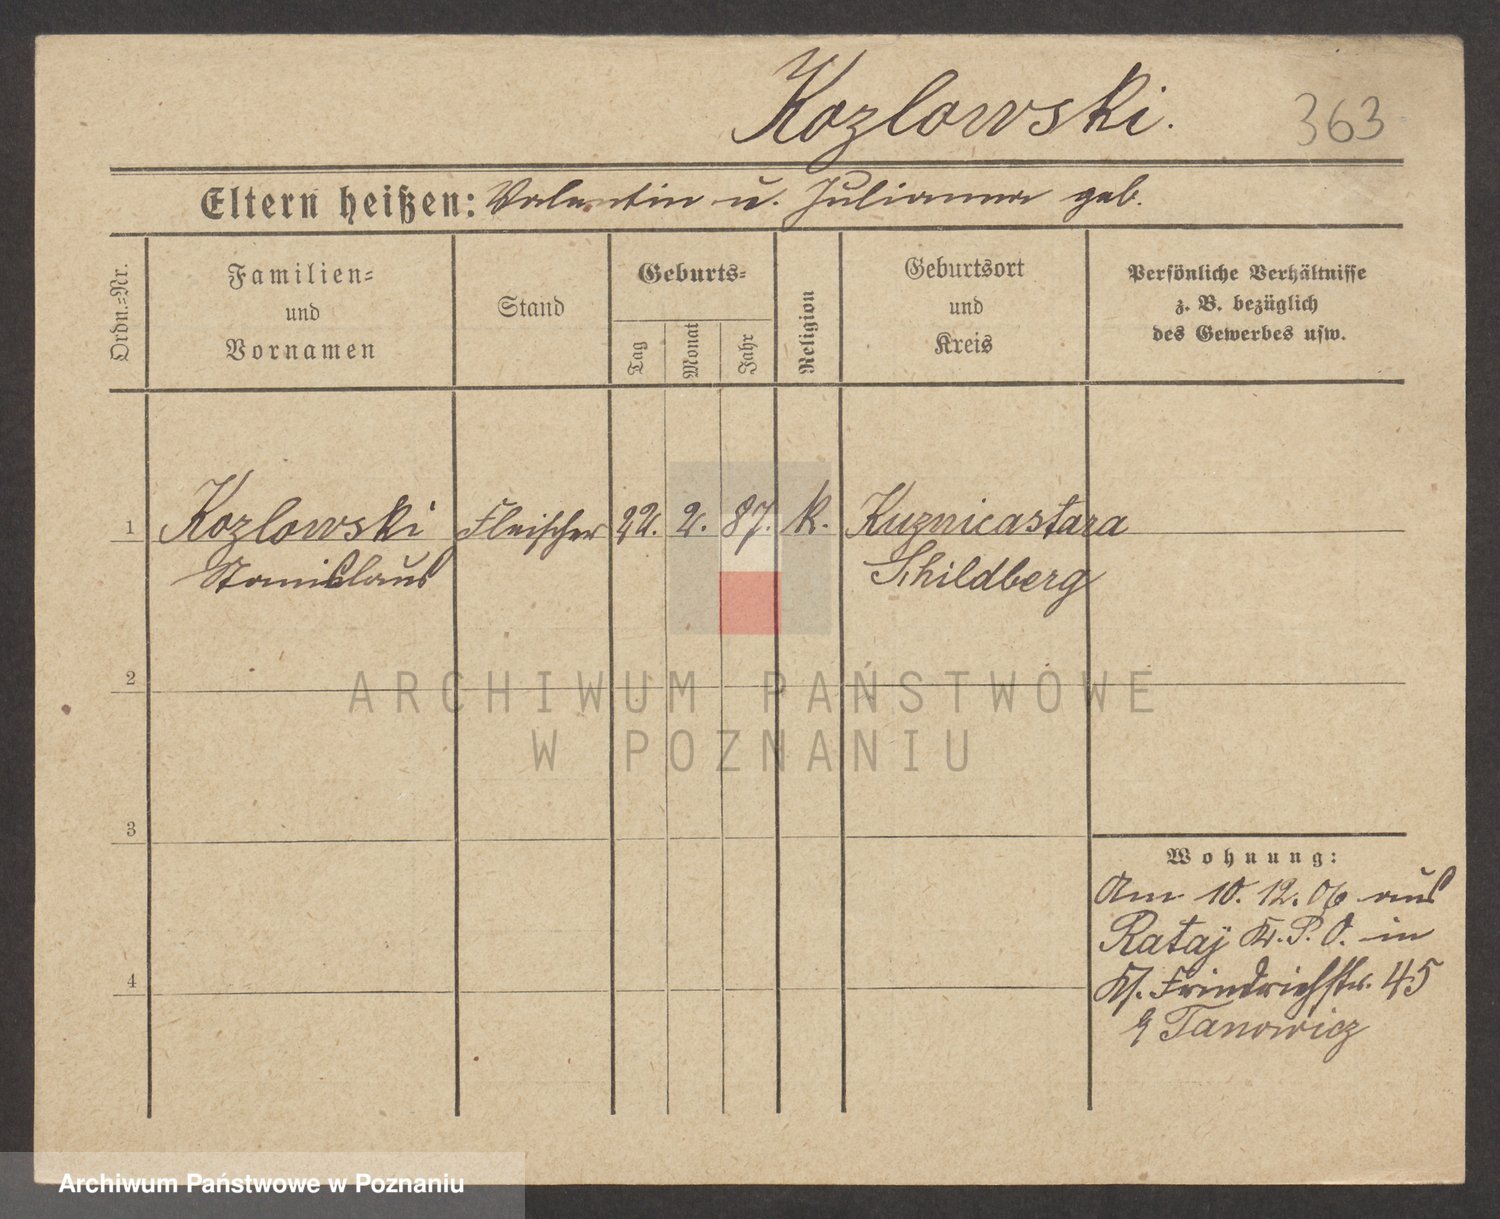 Kozlowski.
363
Eltern heißen: Valentin u. Julianna geb.
Ordn.=Nr.
Familien=
und
Vornamen
Stand
Geburts=
Tag
Monat
Jahr
Religion
Geburtsort
und
Kreis
Persönliche Verhältnisse
z. B. bezüglich
des Gewerbes usw.
1 Kozlowski Fleischer 22. 2. 87. k. Kuznicastara
Stanislaus Schildberg
2
ARCHIWUM PAŃSTWOWE
W POZNANIU
3
Wohnung:
Am 10. 12. 06 aus
Rataj Kr. P. O. in
4
Friedrichstr. 45
Tanowicz
Archiwum Państwowe w Poznaniu